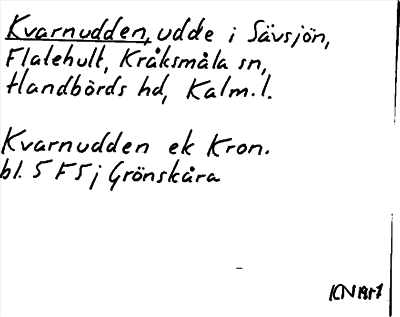 Kvarnudden, udde i Sävsjön,
Flatehult, Kråksmåla sn,
Handbörds hd, Kalm. l.
Kvarnudden ek Kron.
bl. 5 F 5 j Grönskåra